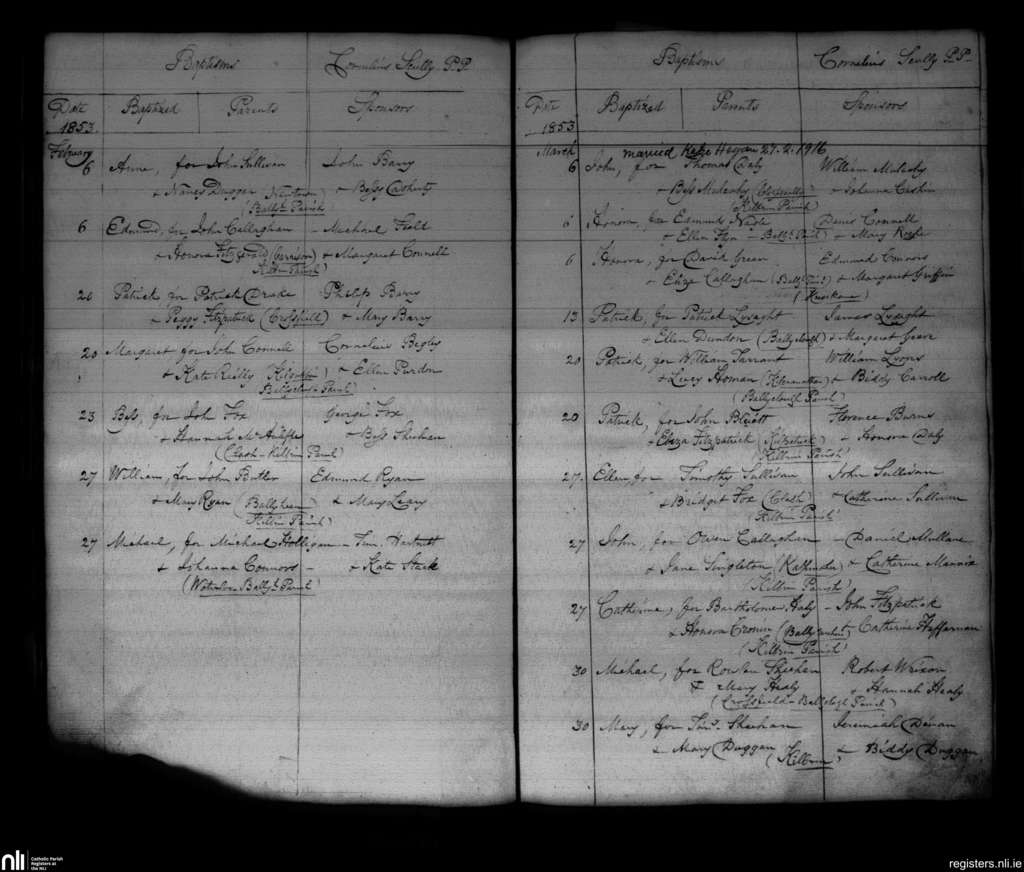 Baptisms Cornelius Scully P.P.
Date Baptized Parents Sponsors
1853
February
6 Anne, for John Sullivan John Barry
+ Nancy Duggan (Newtown) + Bess Doherty
(Ballyh. Parish)
6 Edmund, for John Callaghan – Michael Field
+ Honora Fitzgerald (Garrison) + Margaret Connell
Kilbrin Parish)
20 Patrick for Patrick Drake Philip Barry
+ Peggy Fitzpatrick (Crossfield) + Mary Barry
20 Margaret for John Connell Cornelius Begly
+ Kate Reilly + Ellen Purdon
Ballyclough Parish)
23 Bess, for John Fox George Fox
+ Hannah McAuliffe – Bess Sheehan
(Clash – Kilbrin Parish)
27 William, for John Butler Edmund Ryan
+ Mary Ryan (Ballyheen + Mary Leary
Kilbrin Parish)
27 Michael, for Michael Holligan – Tim. Hartnett
+ Johanna Connors – + Kate Stack
(Waterloo Ballyh. Parish)
Baptisms Cornelius Scully P.P.
Date Baptized Parents Sponsors
1853
March married Kate Hogan 27.2.1916
6 John, for Thomas Daly William Mulcahy
+ Bess Mulcahy + Johanna Cashin
Kilbrin Parish)
6 for Edmund Denis Connell
+ Ellen Flyn – Ballyh. Parish) + Mary
6 Honora, for David Green Edmund Connors
+ Eliza Callaghan (Ballyh. Parish) + Margaret Griffin
13 Patrick, for Patrick Lysaght James Lysaght
+ Ellen Dundon (Ballyclough) + Margaret Geare
20 Patrick, for William Tarrant William Lyons
+ Lucy Homan + Biddy Carroll
(Ballyclough Parish)
20 Patrick, for John Florence Burns
+ Eliza Fitzpatrick (Kilpatrick) + Honora Daly
(Kilbrin Parish)
27. Ellen, for Timothy Sullivan John Sullivan
+ Bridget Fox (Clash) + Catherine Sullivan
(Kilbrin Parish)
27 John, for Owen Callaghan – Daniel Mullane
+ Jane Singleton + Catherine Mannix
Kilbrin Parish)
27 Catherine, for Bartholomew Haly – John Fitzpatrick
+ Honora Cronin + Catherine Heffernan
(Kilbrin Parish)
30 Michael, for Rowlan Sheehan Robert Wrixon
& Mary Healy + Hannah Healy
(Crossfield – Ballyclogh Parish)
30 Mary, for Timy. Sheehan Jeremiah
+ Mary Duggan (Kilbrin) + Biddy Duggan
nli
Catholic Parish
Registers at
the NLI
registers.nli.ie